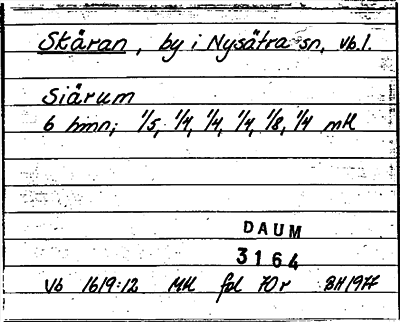 Skäran, by i Nysätra sn, Vb.l.
Siärum
6 hmn; 1/5, 1/4, 1/4, 1/4, 1/8, 1/4 mtl
DAUM
3164
Vb 1619:12 Mtl fol 70r BH 1977